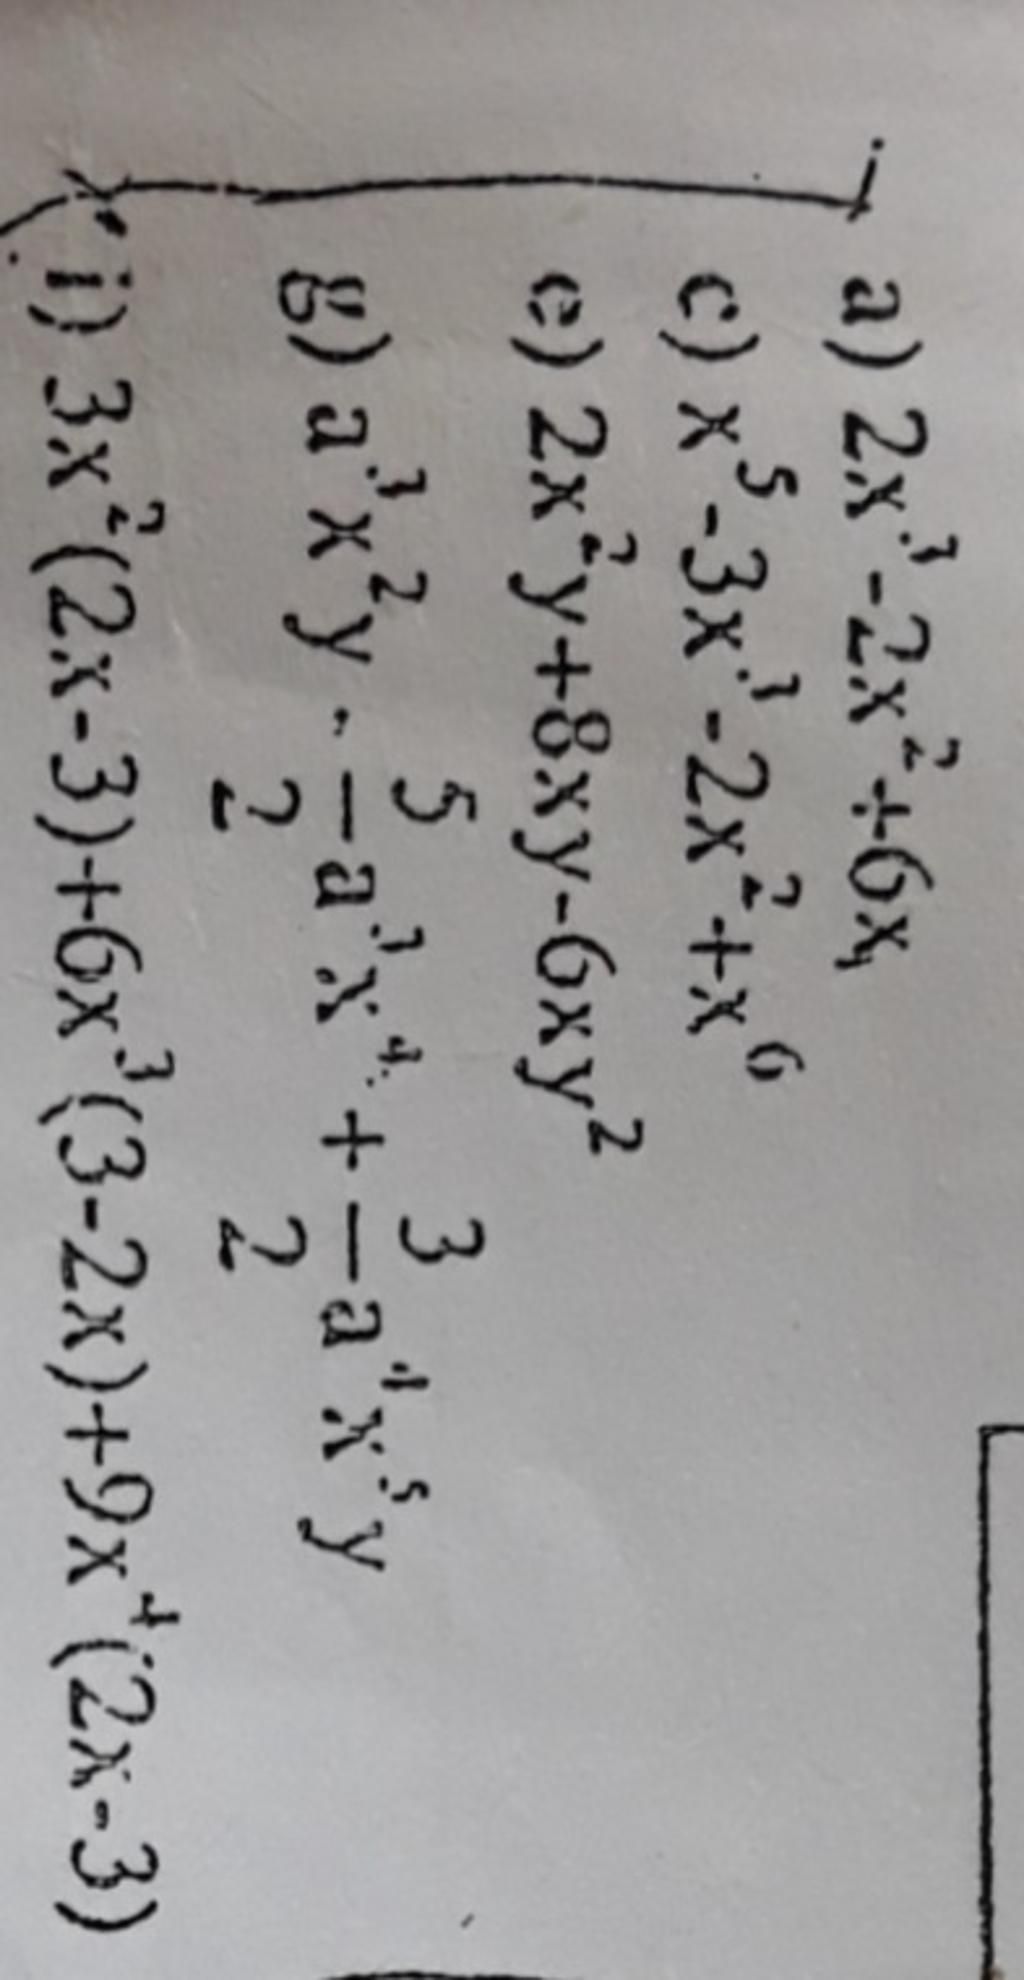 a) 2x³-2x²+6x
c) x⁵-3x³-2x²+x⁶
e) 2x²y+8xy-6xy²
g) a³x²y - 5/2 a³x⁴ + 3/2 a⁴x⁵y
i) 3x²(2x-3)+6x³(3-2x)+9x⁴(2x-3)